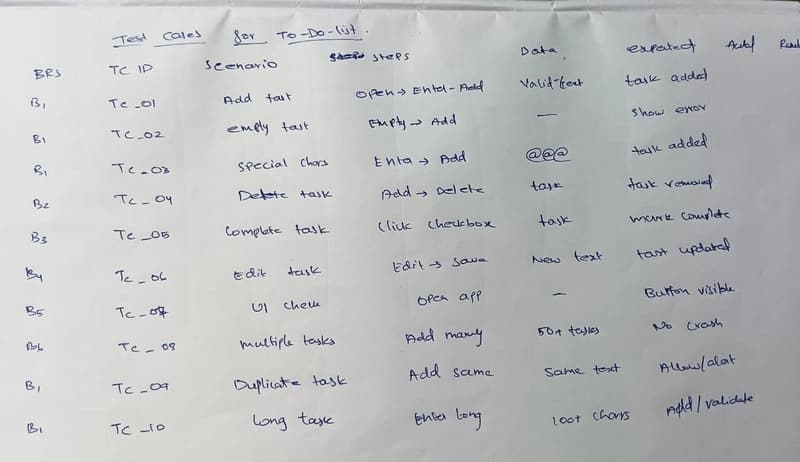 Test Cases for To-Do-list.
BRS TC ID Scenario Steps Data, expected Actual
B1 Tc_01 Add tast Open → Enter - Add Valid-text task added
B1 TC_02 empty tast Empty → Add — Show error
B1 TC_03 Special chars Enter → Add @@@ task added
B2 TC_04 Delete task Add → Delete task task removed
B3 Tc_05 Complete task Click Checkbox task mark complete
B4 Tc_06 Edit task Edit → Save New text tast updated
B5 Tc_07 UI check Open app — Button visible
B6 Tc_08 multiple tasks Add many 50+ tasks No Crash
B1 TC_09 Duplicate task Add same Same text Allow/alat
B1 TC_10 Long task Enter long 100+ chars Add/validate